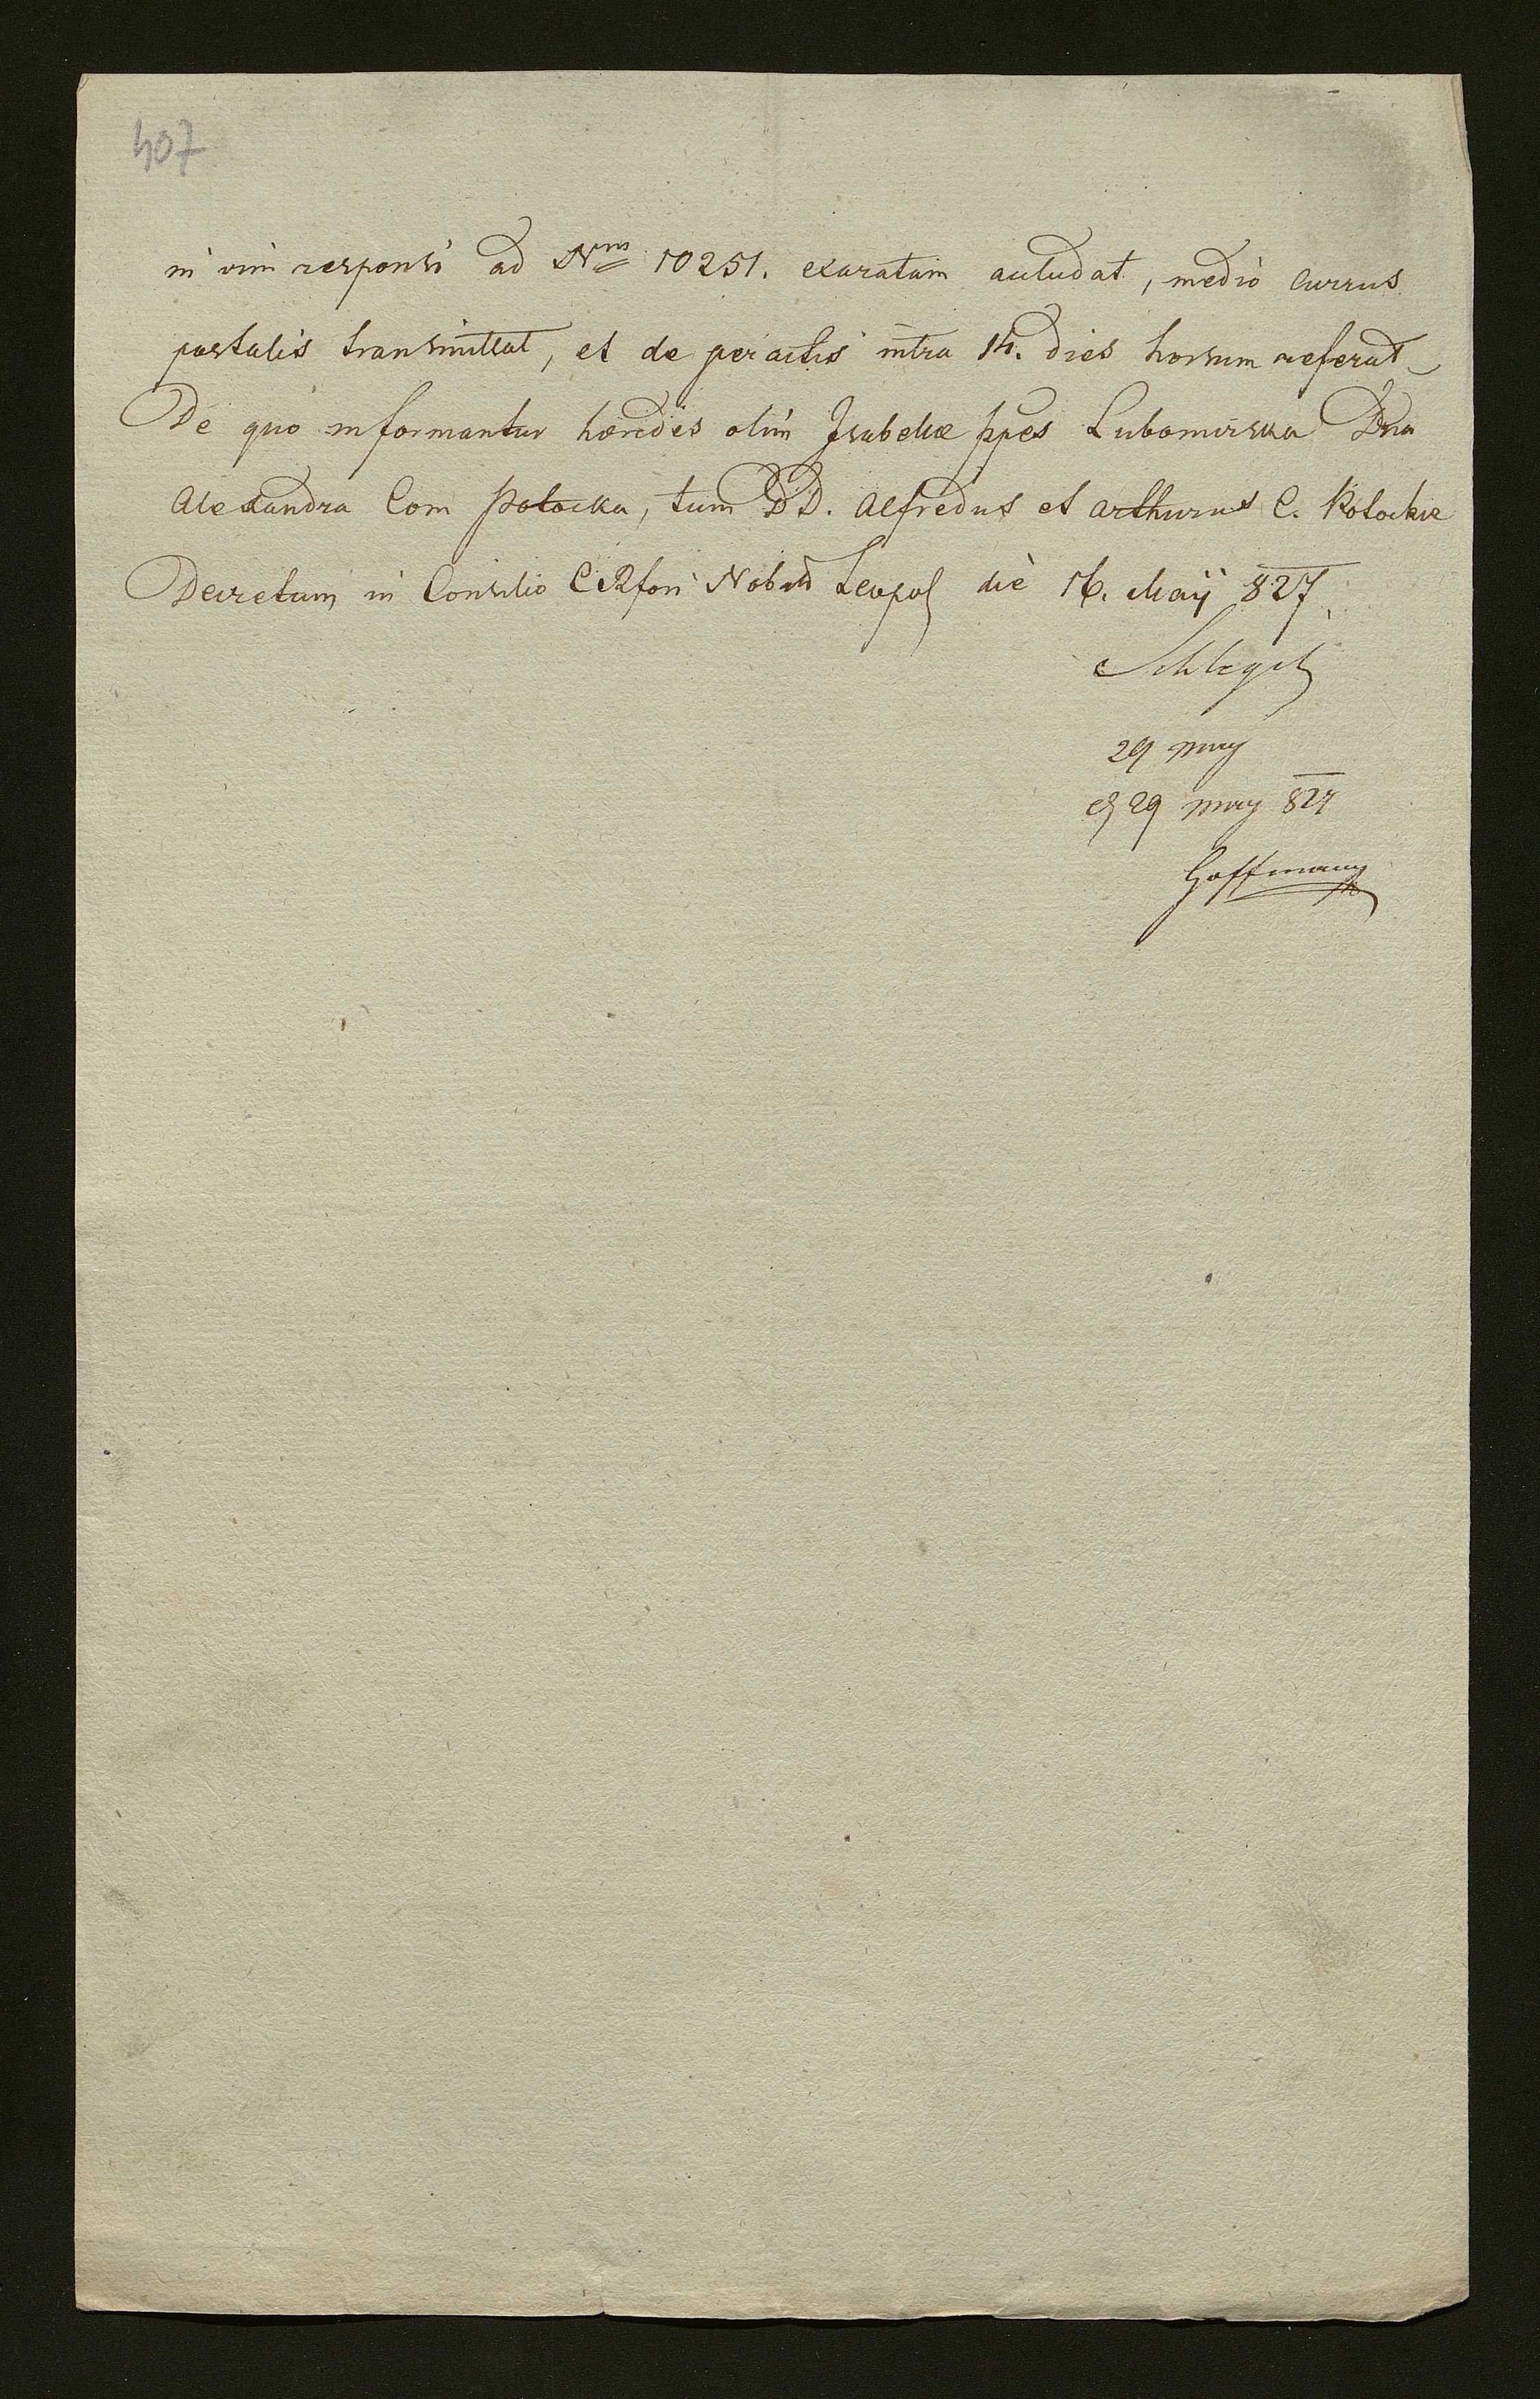 407
in vim responsi ad Nrm 10251. exaratam acludat, medio currus
postalis transmittat, et de peractis intra 14. dies horsum referat
De quo informantur hæredes olim Isabellæ ppes Lubomirska Dna
Alexandra Com Potocka, tum DD. Alfredus et Arthurus C. Potockie
Decretum in Consilio CRfori Nobm Leopol die 16. Maÿ 827.
Schlegel
29 may
29 may 827
Hoffmann